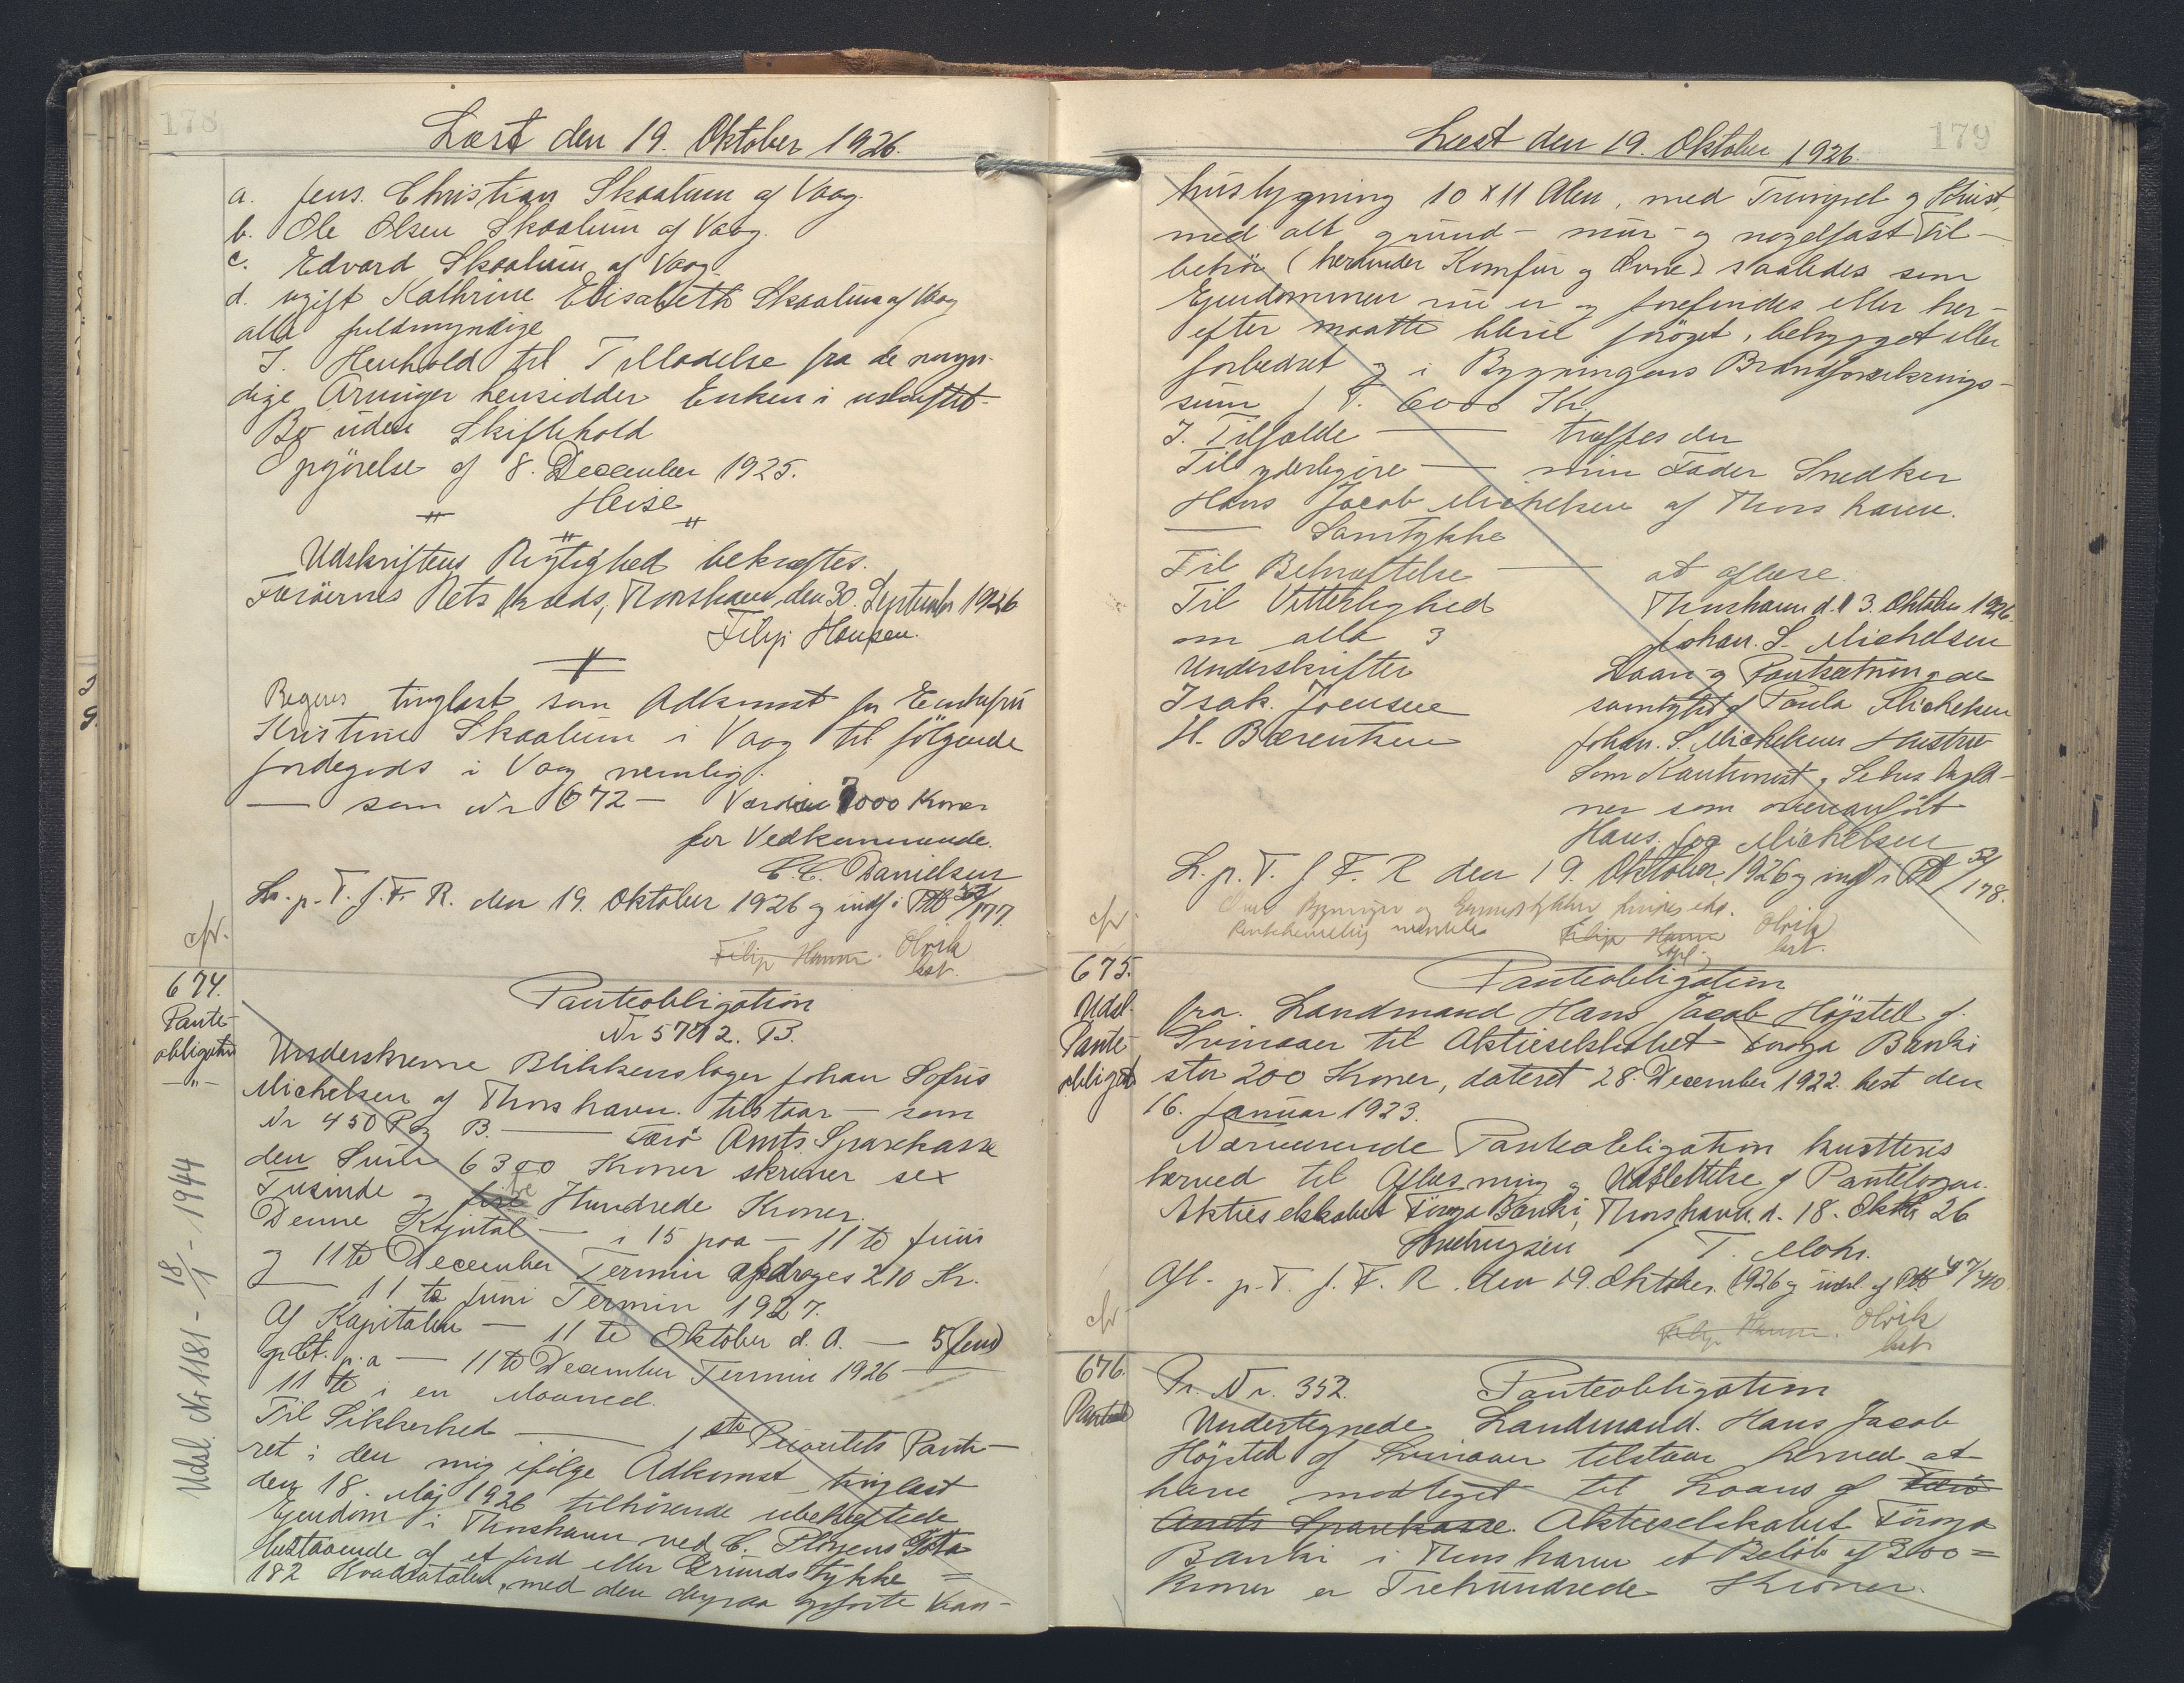 178
Læst den 19. Oktober 1926.
a. Jens Christian Skaalum af Vaag.
b. Ole Olsen Skaalum af Vaag.
c. Edvard Skaalum af Vaag.
d. ugift Kathrine Elisabeth Skaalum af Vaag
alle fuldmyndige
I. Henhold til Tilladelse fra de myn-
dige Arvinger hensidder Enken i uskiftet
Bo uden Skiftehold
Opgörelse af 8. December 1925.
Heise
Udskriftens Rigtighed bekræftes.
Færöernes Ret, Thorshavn den 30. September 1926
Filip Hansen.
Begeres tinglæst som Adkomst for Enkefru
Kristine Skaalum i Vaag til fölgende
Jordegods i Vaag nemlig:
— som Nr 672 — Værdien 7000 Kroner
for Vedkommende.
C.C. Danielsen
L. p. T. f. F. R. den 19. Oktober 1926 og indf. i PB 52/177.
cfr.
Filip Hansen. Olrik
kst.
674.
Pante-
obligation
—"—
Panteobligation
Nr 5772. B.
Underskrevne Blikkenslager Johan Sofus
Michelsen af Thorshavn tilstaar — som
Nr 450 P og B. — Færö Amts Sparekasse
den Sum 6300 Kroner skriver sex
Tusinde og Hundrede Kroner.
Denne Kapital — i 15 paa — 11te Juni
og 11te December Termin afdrages 210 Kr.
— 11te Juni Termin 1927.
Af Kapitalen — 11te Oktober d. A. — 5 (fem)
pCt. p.a — 11te December Termin 1926 —
11te i en Maaned.
Til Sikkerhed — 1ste Prioritets Pante-
ret i den mig ifölge Adkomst tinglæst
den 18. Maj 1926 tilhörende ubehæftede
Ejendom i Thorshavn ved C. Pløyens Göta
bestaaende af et Jord eller Grundstykke =
182 Kvadratalen, med den derpaa opförte Vaan-
Udsl. Nr 1181 - 18/1 - 1944
179
Læst den 19. Oktober 1926.
husbygning 10 x 11 Alen, med Trempel og Kvist,
med alt grund- mur- og nagelfast Til-
behör (herunder Komfur og Ovne) saaledes som
Ejendommen nu er og forefindes eller her-
efter maatte blive foröget, bebygget eller
forbedret og i Bygningens Brandforsikrings-
sum p. T. 6000 Kr.
I. Tilfælde — træffes der
Til yderligere — min Fader Snedker
Hans Jacob Michelsen af Thorshavn.
— Samtykke
Til Bekræftelse — at aflæse.
Til Vitterlighed
om alle 3
Underskrifter
Isak. Joensen
H. Bærentsen
Thorshavn d. 13. Oktober 1926.
Johan. S. Michelsen
Laan og Pantsætningen
samtykt af Paula Michelsen
Johan. S. Michelsens Hustru
Som Kautionist og Selvskyld-
ner som ovenanfört
Hans Jac Michelsen
L. p. T. f. F. R den 19. Oktober 1926 og indf i PB 52/178.
cfr
Bygninger og
Filip Hansen Olrik
kst.
675.
Udsl.
Pante-
obligat.
Panteobligation
fra Landmand Hans Jacob Höjsted af
Svinaaer til Aktieselskabet Föroya Banki
stor 200 Kroner, dateret 28. December 1922. læst den
16. Januar 1923.
Nærværende Panteobligation kvitteres
herved til Aflæsning og Udslettelse af Pantebogen.
Aktieselskabet Föroya Banki, Thorshavn d. 18. Oktbr 26
T. Mohr.
Afl. p. T. f. F. R. den 19. Oktober 1926 og udsl. af PB 47/410
cfr
Filip Hansen. Olrik
kst.
676.
Panteobl
Pr. Nr. 352. Panteobligation
Undertegnede Landmand Hans Jacob
Höjsted af Svinaaer tilstaar herved at
have modtaget til Laans af Færö
Amts Sparekasse. Aktieselskabet Föroya
Banki i Thorshavn et Belöb af 300 =
Kroner er Trehundrede Kroner.